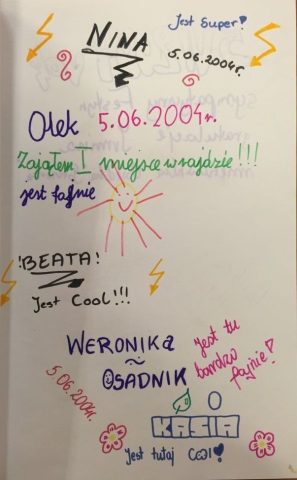 NINA
Jest Super!
5.06.2004r.
Olek 5.06.2004r.
Zająłem I miejsce w rajdzie!!!
jest fajnie
!BEATA!
Jest Cool!!!
WERONIKA
OSADNIK
Jest tu
bardzo
fajnie!
5.06.2004r.
KASIA
Jest tutaj COOl!